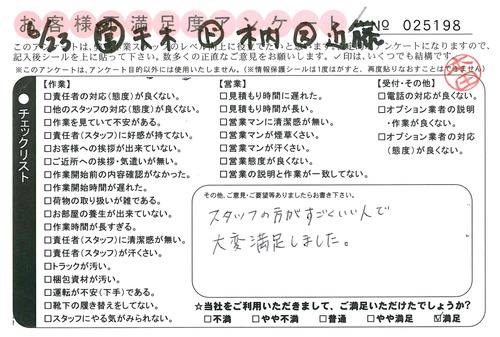 お客様満足度アンケート
No 025198
6/23 柰木 内 近藤
このアンケートは、
記入後シールを上に貼って下さい。数多くの正直なご意見をお願いします。✓印は、いくつでも結構です。
※このアンケートは、アンケート目的以外には使用いたしません。(※情報保護シールは1度はがすと、再度貼りなおすことはできません)
チェックリスト
【作業】
□責任者の対応(態度)が良くない。
□他のスタッフの対応(態度)が良くない。
□作業を見ていて不安がある。
□責任者(スタッフ)に好感が持てない。
□お客様への挨拶が出来ていない。
□ご近所への挨拶・気遣いが無い。
□作業開始前の内容確認がなかった。
□作業開始時間が遅れた。
□荷物の取り扱いが雑である。
□お部屋の養生が出来ていない。
□作業時間が長すぎる。
□責任者(スタッフ)に清潔感が無い。
□責任者(スタッフ)が汗くさい。
□トラックが汚い。
□梱包資材が汚い。
□運転が不安(下手)である。
□靴下の履き替えをしてない。
□スタッフにやる気がみられない。
【営業】
□見積もり時間に遅れた。
□見積もり時間が長い。
□営業マンに清潔感が無い。
□営業マンが煙草くさい。
□営業マンが汗くさい。
□営業態度が良くない。
□営業の説明と作業が一致してない。
【受付・その他】
□電話の対応が良くない。
□オプション業者の説明
・作業が良くない。
□オプション業者の対応
(態度)が良くない。
その他、ご意見・ご要望等ありましたらお書き下さい。
スタッフの方がすごくいい人で
大変満足しました。
☆当社をご利用いただきまして、ご満足いただけたでしょうか?
□不満 □やや不満 □普通 □やや満足 ☑満足